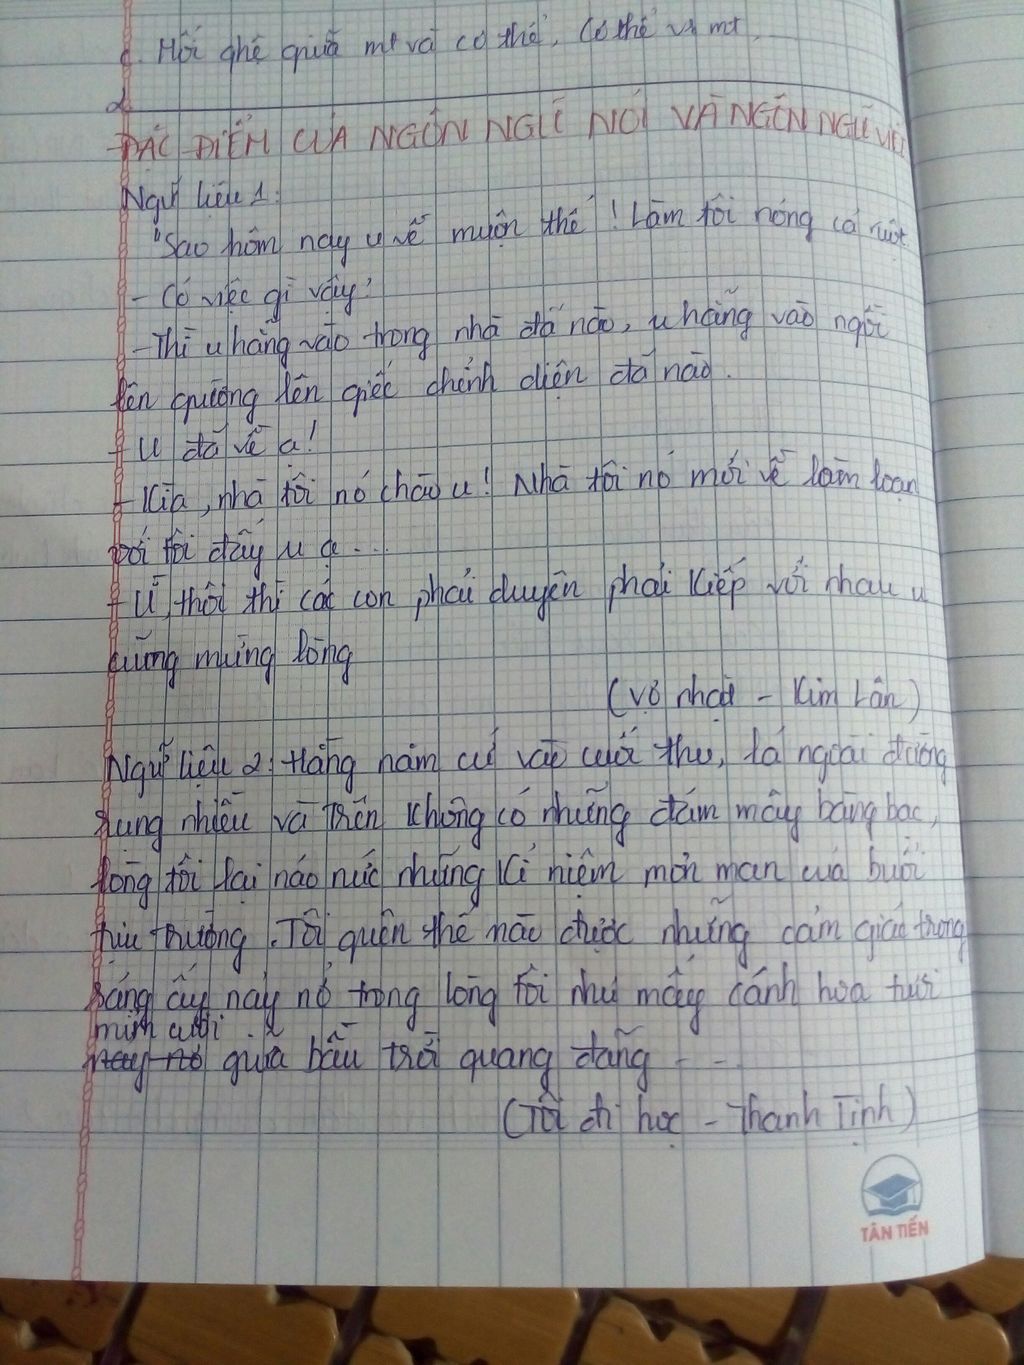 c. Hồi ghế giữa mt và cơ thể, cơ thể và mt.
2
ĐẶC ĐIỂM CỦA NGÔN NGỮ NÓI VÀ NGÔN NGỮ VIẾT
Ngữ liệu 1:
"Sao hôm nay u về muộn thế! Làm tôi nóng cả ruột.
- Có việc gì vậy?
- Thì u hẵng vào trong nhà đã nào, u hẵng vào ngồi
lên giường lên giếc chỉnh diện đã nào.
- U đã về ạ!
- Kìa, nhà tôi nó chào u! Nhà tôi nó mới về làm loạn
với tôi đấy u ạ...
- Ừ, thôi thì các con phải duyên phải kiếp với nhau u
cũng mừng lòng
(Vợ nhặt - Kim Lân)
Ngữ liệu 2: Hằng năm cứ vào cuối thu, lá ngoài đường
rụng nhiều và trên không có những đám mây bàng bạc,
lòng tôi lại náo nức những kỉ niệm mơn man của buổi
tựu trường. Tôi quên thế nào được những cảm giác trong
sáng ấy nảy nở trong lòng tôi như mấy cánh hoa tươi
mỉm cười
nảy nở giữa bầu trời quang đãng ...
(Tôi đi học - Thanh Tịnh)
TÂN TIẾN